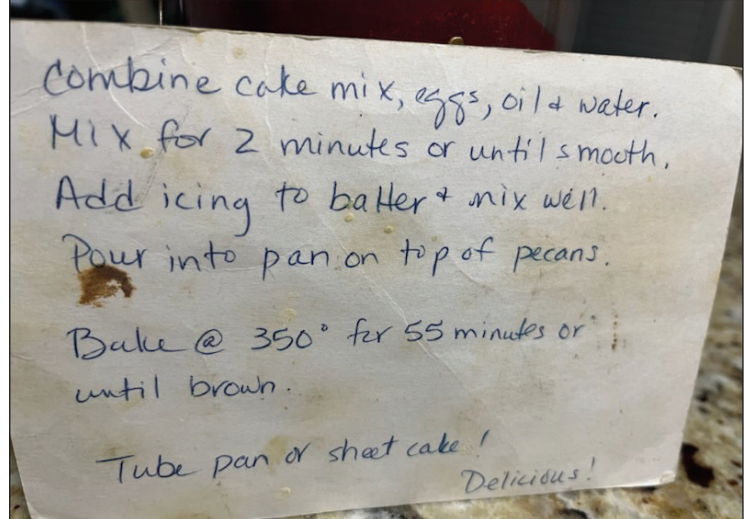 Combine cake mix, eggs, oil & water.
Mix for 2 minutes or until smooth.
Add icing to batter & mix well.
Pour into pan on top of pecans.
Bake @ 350° for 55 minutes or
until brown.
Tube pan or sheet cake!
Delicious!